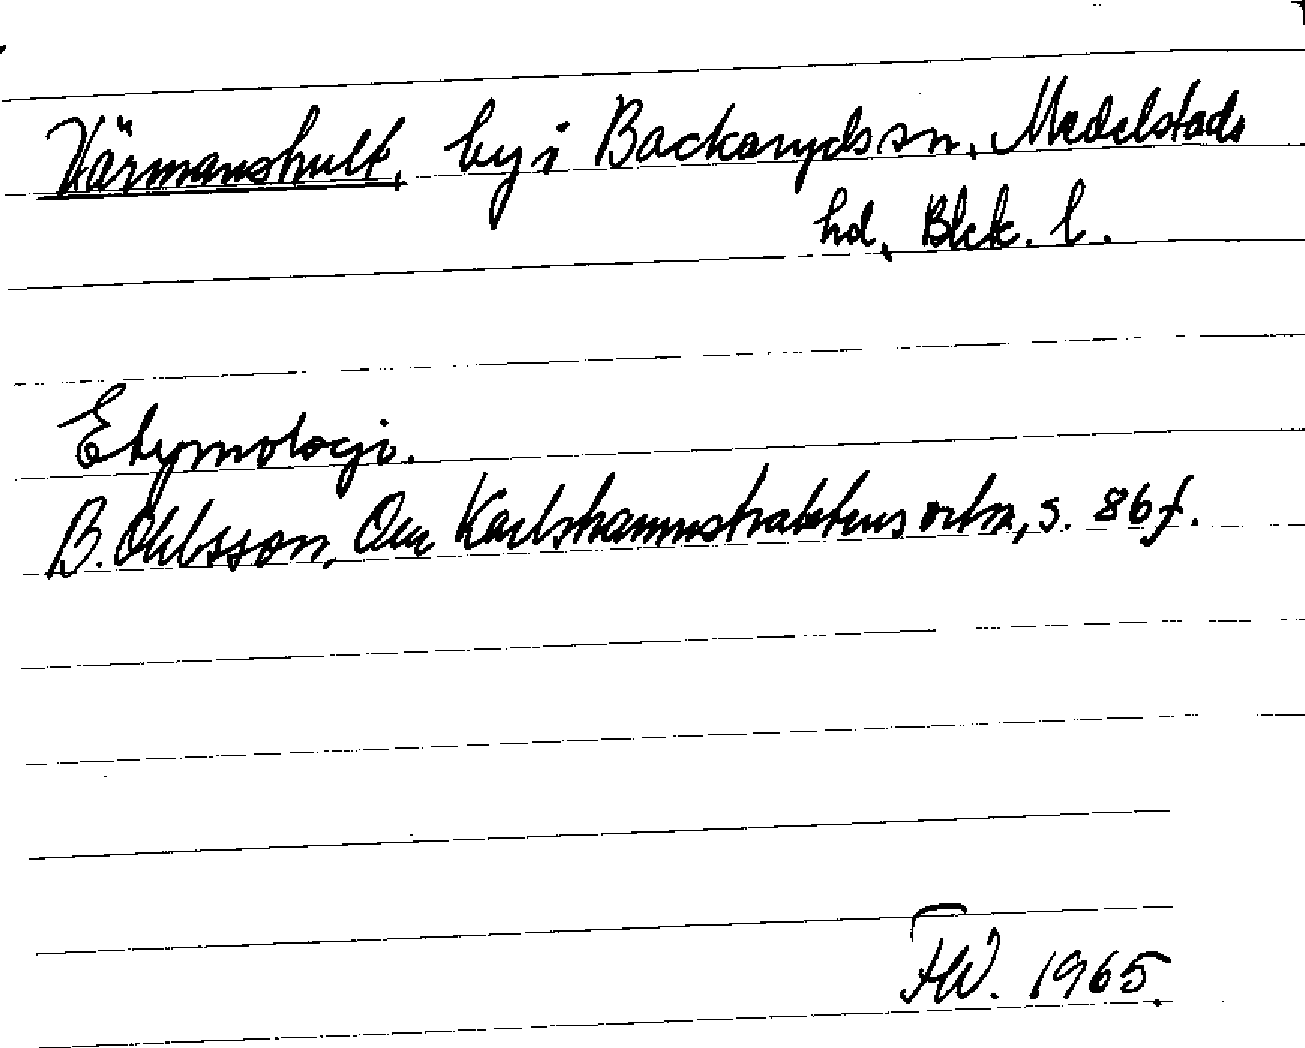 Värmanshult, by i Backaryds sn, Medelstads
hd, Blek. l.
Etymologi.
B. Ohlsson, Om Karlshamnstraktens ortn, s. 86 f.
FW. 1965.